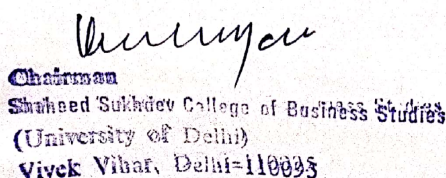 Chairman
Shaheed Sukhdev College of Business Studies
(University of Delhi)
Vivek Vihar, Delhi-110095